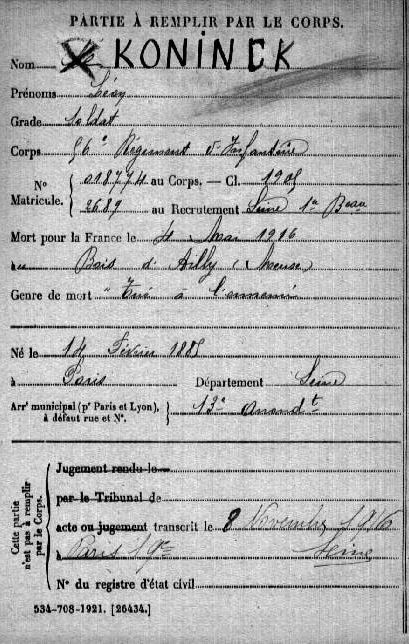 PARTIE À REMPLIR PAR LE CORPS.
Nom KONINCK
Prénoms Léon
Grade Soldat
Corps 56e Régiment d'Infanterie
No Matricule. { 018774 au Corps. — Cl. 1905
2689 au Recrutement Seine 1er Beau
Mort pour la France le 4 Mai 1916
à Bois d'Ailly (Meuse)
Genre de mort " Tué à l'ennemi
Né le 14 Février 1885
à Paris Département Seine
Arrt municipal (pr Paris et Lyon), à défaut rue et No. } 13e Arrondt
Cette partie n'est pas à remplir par le Corps.
Jugement rendu le
par le Tribunal de
acte ou jugement transcrit le 8 Novembre 1916
à Paris 19e Seine
No du registre d'état civil
534-708-1921. [26434.]